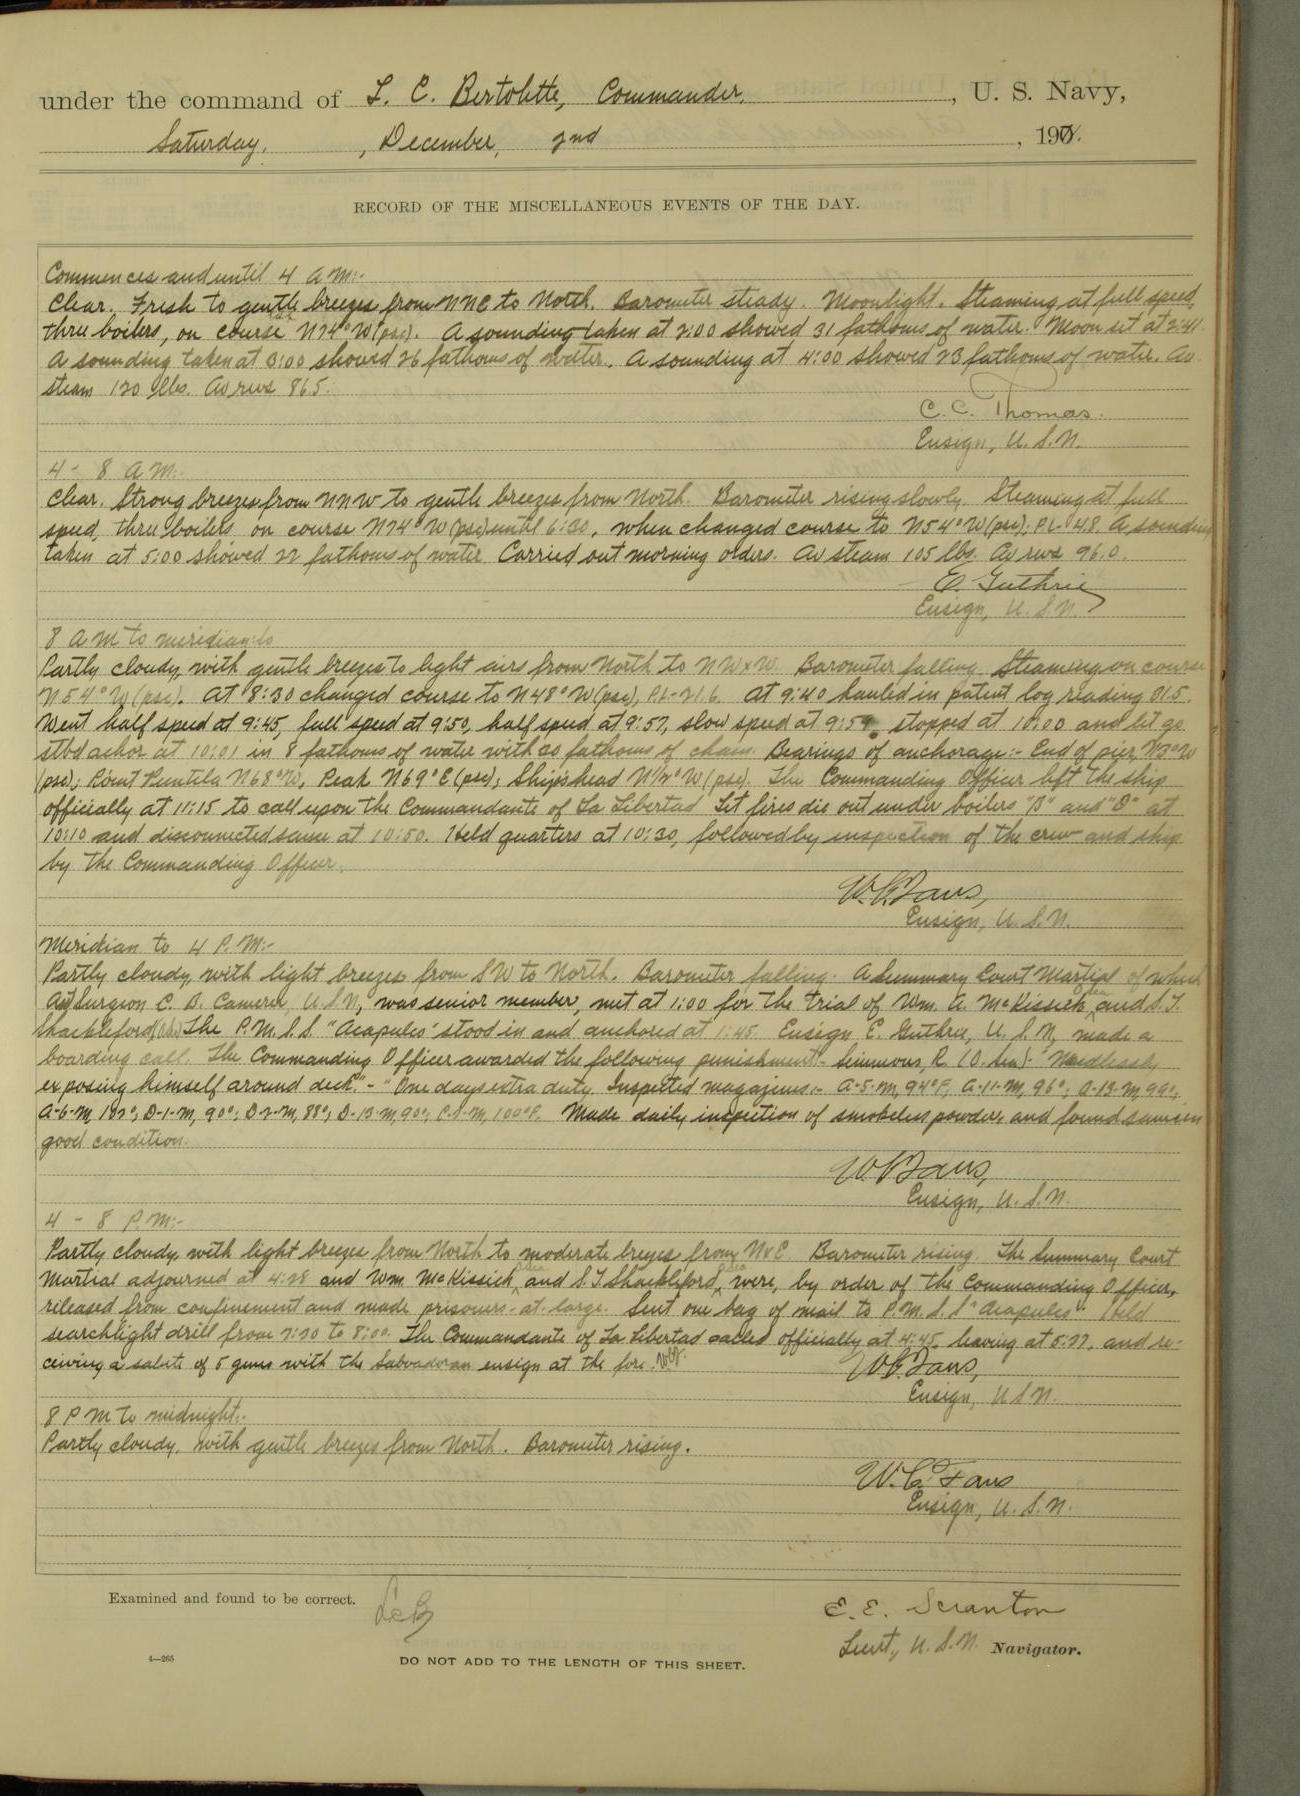 under the command of L. C. Bertolette, Commander, U. S. Navy,
Saturday, December, 2nd, 190
RECORD OF THE MISCELLANEOUS EVENTS OF THE DAY.
Commences and until 4 A M:-
Clear. Fresh to gentle breezes from NNE to North. Barometer steady. Moonlight. Steaming at full speed,
three boilers, on course N74°W (psc). A sounding taken at 2:00 showed 31 fathoms of water. Moon set at 2:41.
A sounding taken at 3:00 showed 26 fathoms of water. A sounding at 4:00 showed 23 fathoms of water. Av
steam 120 lbs. Av revs 86.5.
C. C. Thomas.
Ensign, U. S. N.
4 - 8 A M:-
Clear. Strong breezes from NNW to gentle breezes from North. Barometer rising slowly. Steaming at full
speed, three boilers on course N74°W (psc) until 6:30, when changed course to N54°W (psc); P.L. 48. A sounding
taken at 5:00 showed 22 fathoms of water. Carried out morning orders. Av steam 105 lbs. Av revs 96.0.
E. Guthrie
Ensign, U. S. N.
8 A M to meridian:-
Partly cloudy, with gentle breezes to light airs from North to NWxW. Barometer falling. Steaming on course
N54°W (psc). At 8:30 changed course to N48°W (psc), P.L-21.6. At 9:40 hauled in patent log reading 01.5.
Went half speed at 9:45, full speed at 9:50, half speed at 9:57, slow speed at 9:59, stopped at 10:00 and let go
stbd achor at 10:01 in 8 fathoms of water with 30 fathoms of chain. Bearings of anchorage:- End of pier, N3°W
(psc); Point N68°W, Peak N69°E (psc); Ship's head N½°W (psc). The Commanding Officer left the ship
officially at 11:15 to call upon the Commandante of La Libertad. Let fires die out under boilers "B" and "D" at
10:10 and disconnected same at 10:50. Held quarters at 10:30, followed by inspection of the crew and ship
by the Commanding Officer.
W. C. Faus,
Ensign, U. S. N.
Meridian to 4 P. M:-
Partly cloudy, with light breezes from SW to North. Barometer falling. A Summary Court Martial of which
Surgeon C. B. Camerer, U. S. N, was senior member, met at 1:00 for the trial of Wm. A. McKissick, and S. T.
Shackleford, The P. M. S. S. "Acapulco" stood in and anchored at 1:45. Ensign E. Guthrie, U. S. N, made a
boarding call. The Commanding Officer awarded the following punishment:- Simmons, R. (O. Sea):- "Needlessly
exposing himself around deck." - "One days extra duty. Inspected magazines:- A-5-M, 94°F, A-11-M, 96°; A-13-M, 99°;
A-6-M, 102°; D-1-M, 90°; D-2-M, 88°; D-13-M, 90°; 100°F. Made daily inspection of smokeless powder, and found same in
good condition.
W. C. Faus,
Ensign, U. S. N.
4 - 8 P. M:-
Partly cloudy, with light breezes from North to moderate breezes from NxE. Barometer rising. The Summary Court
Martial adjourned at 4:28 and Wm. McKissick, and S. T. Shackleford, were, by order of the Commanding Officer,
released from confinement and made prisoners-at-large. Sent one bag of mail to P. M. S. S. "Acapulco". Held
searchlight drill from 7:20 to 8:00. The Commandante of La Libertad called officially at 4:45, leaving at 5:27, and re-
ceiving a salute of 5 guns with the Salvadoran ensign at the fore. WCF.
W. C. Faus,
Ensign, U S N.
8 P M to midnight:-
Partly cloudy, with gentle breezes from North. Barometer rising.
W. C. Faus
Ensign, U. S. N.
Examined and found to be correct. LCB
E. E. Scranton
Lieut, U. S. N. Navigator.
4—265
DO NOT ADD TO THE LENGTH OF THIS SHEET.